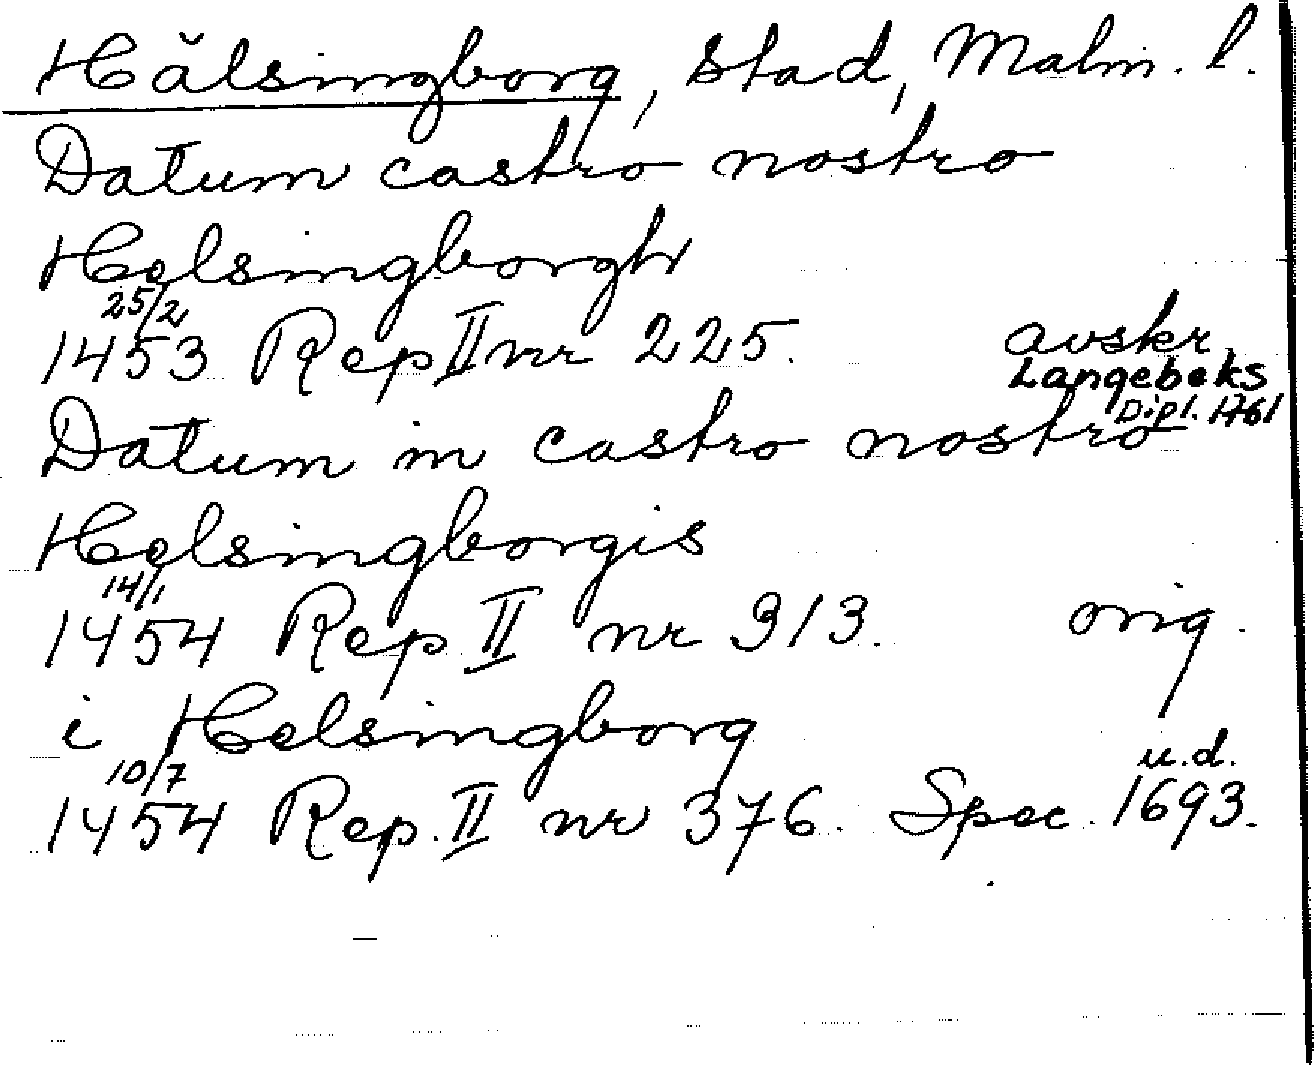 Hälsingborg, stad, Malm. l.
Datum castro nostro
Helsingborgh
25/2
1453 Rep II nr 225. avskr.
Langebeks
Dipl. 1761
Datum in castro nostro
Helsingborgis
14/1
1454 Rep. II nr 313. orig.
i Helsingborg
10/7 u.d.
1454 Rep. II nr 376. Spec. 1693.